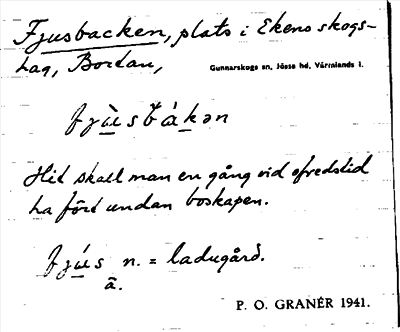 Fjusbacken, plats i Ekens skogs-
hag, Bordan,
Gunnarskogs sn, Jösse hd, Värmlands l.
fjùsbákən
Hit skall man en gång vid ofredstid
ha fört undan boskapen.
fjús n. = ladugård.
ã.
P. O. GRANÉR 1941.